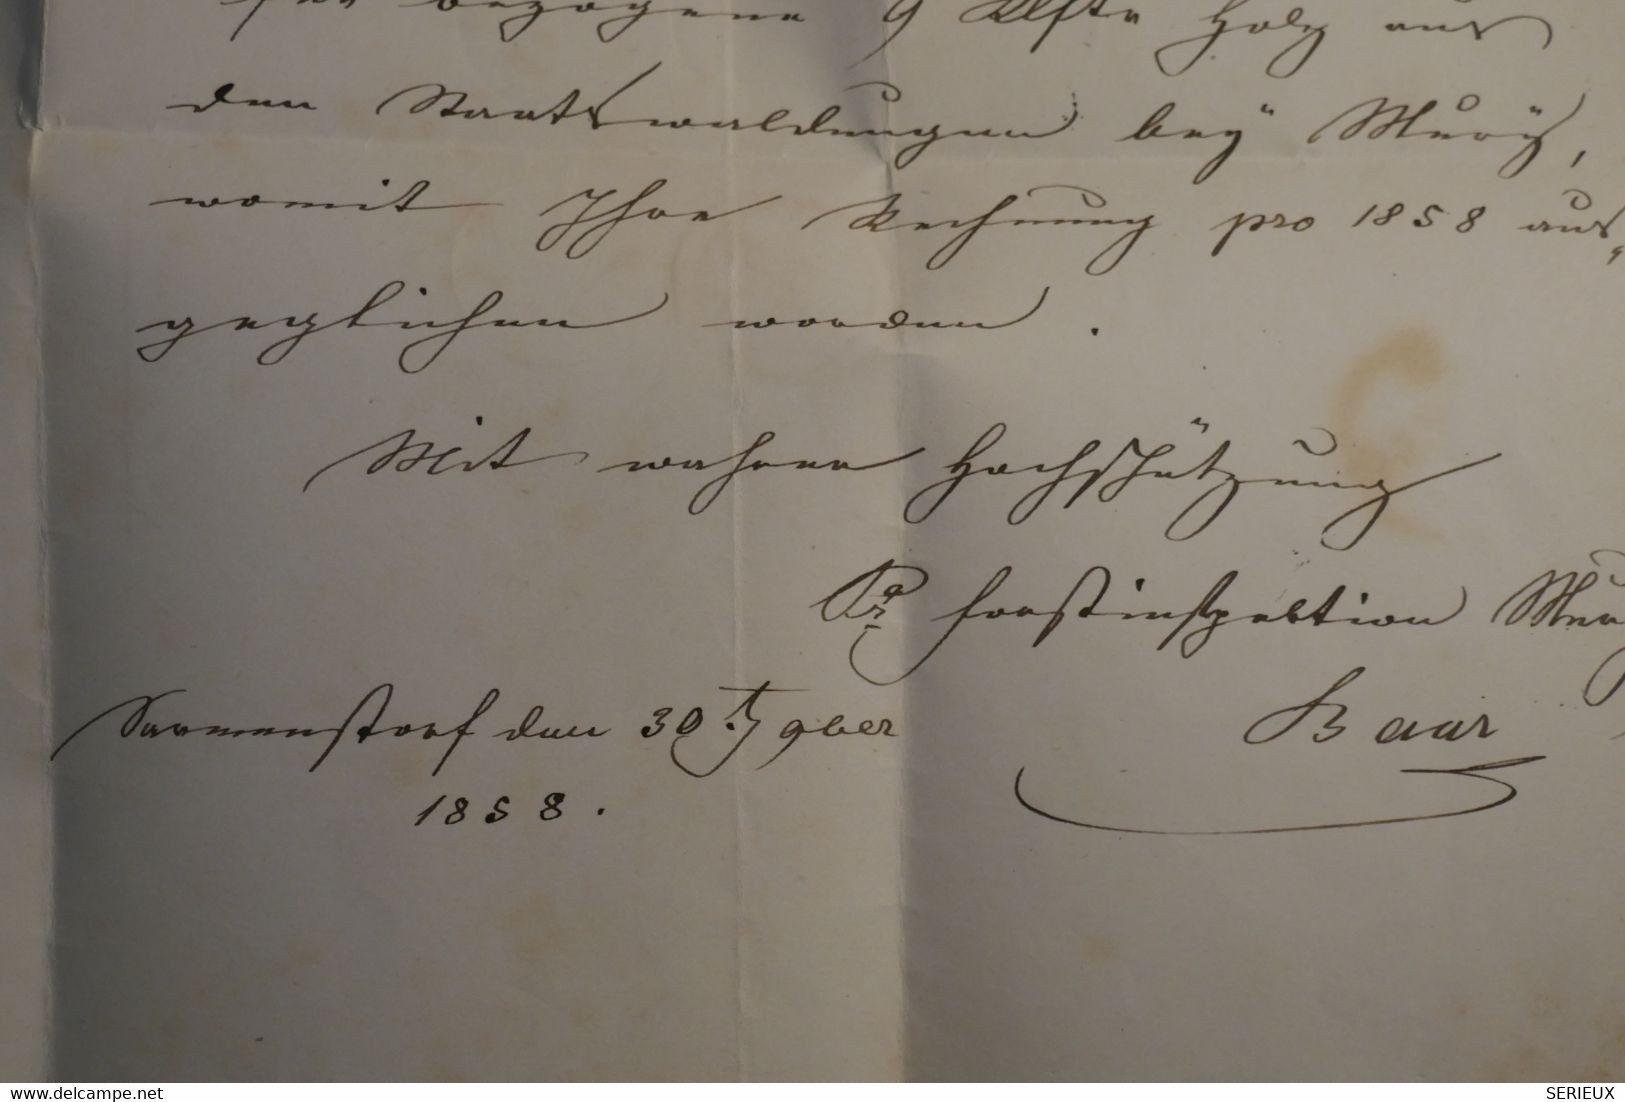 für bezogene 9 Klftr Holz aus
den Staatswaldungen bey Mury,
womit Ihre Rechnung pro 1858 aus„
geglichen worden.
Mit wahrer Hochschätzung
Forstinspektion Mury
Sarmenstorf den 30t 9ber
Baur
1858.
www.delcampe.net
SERIEUX